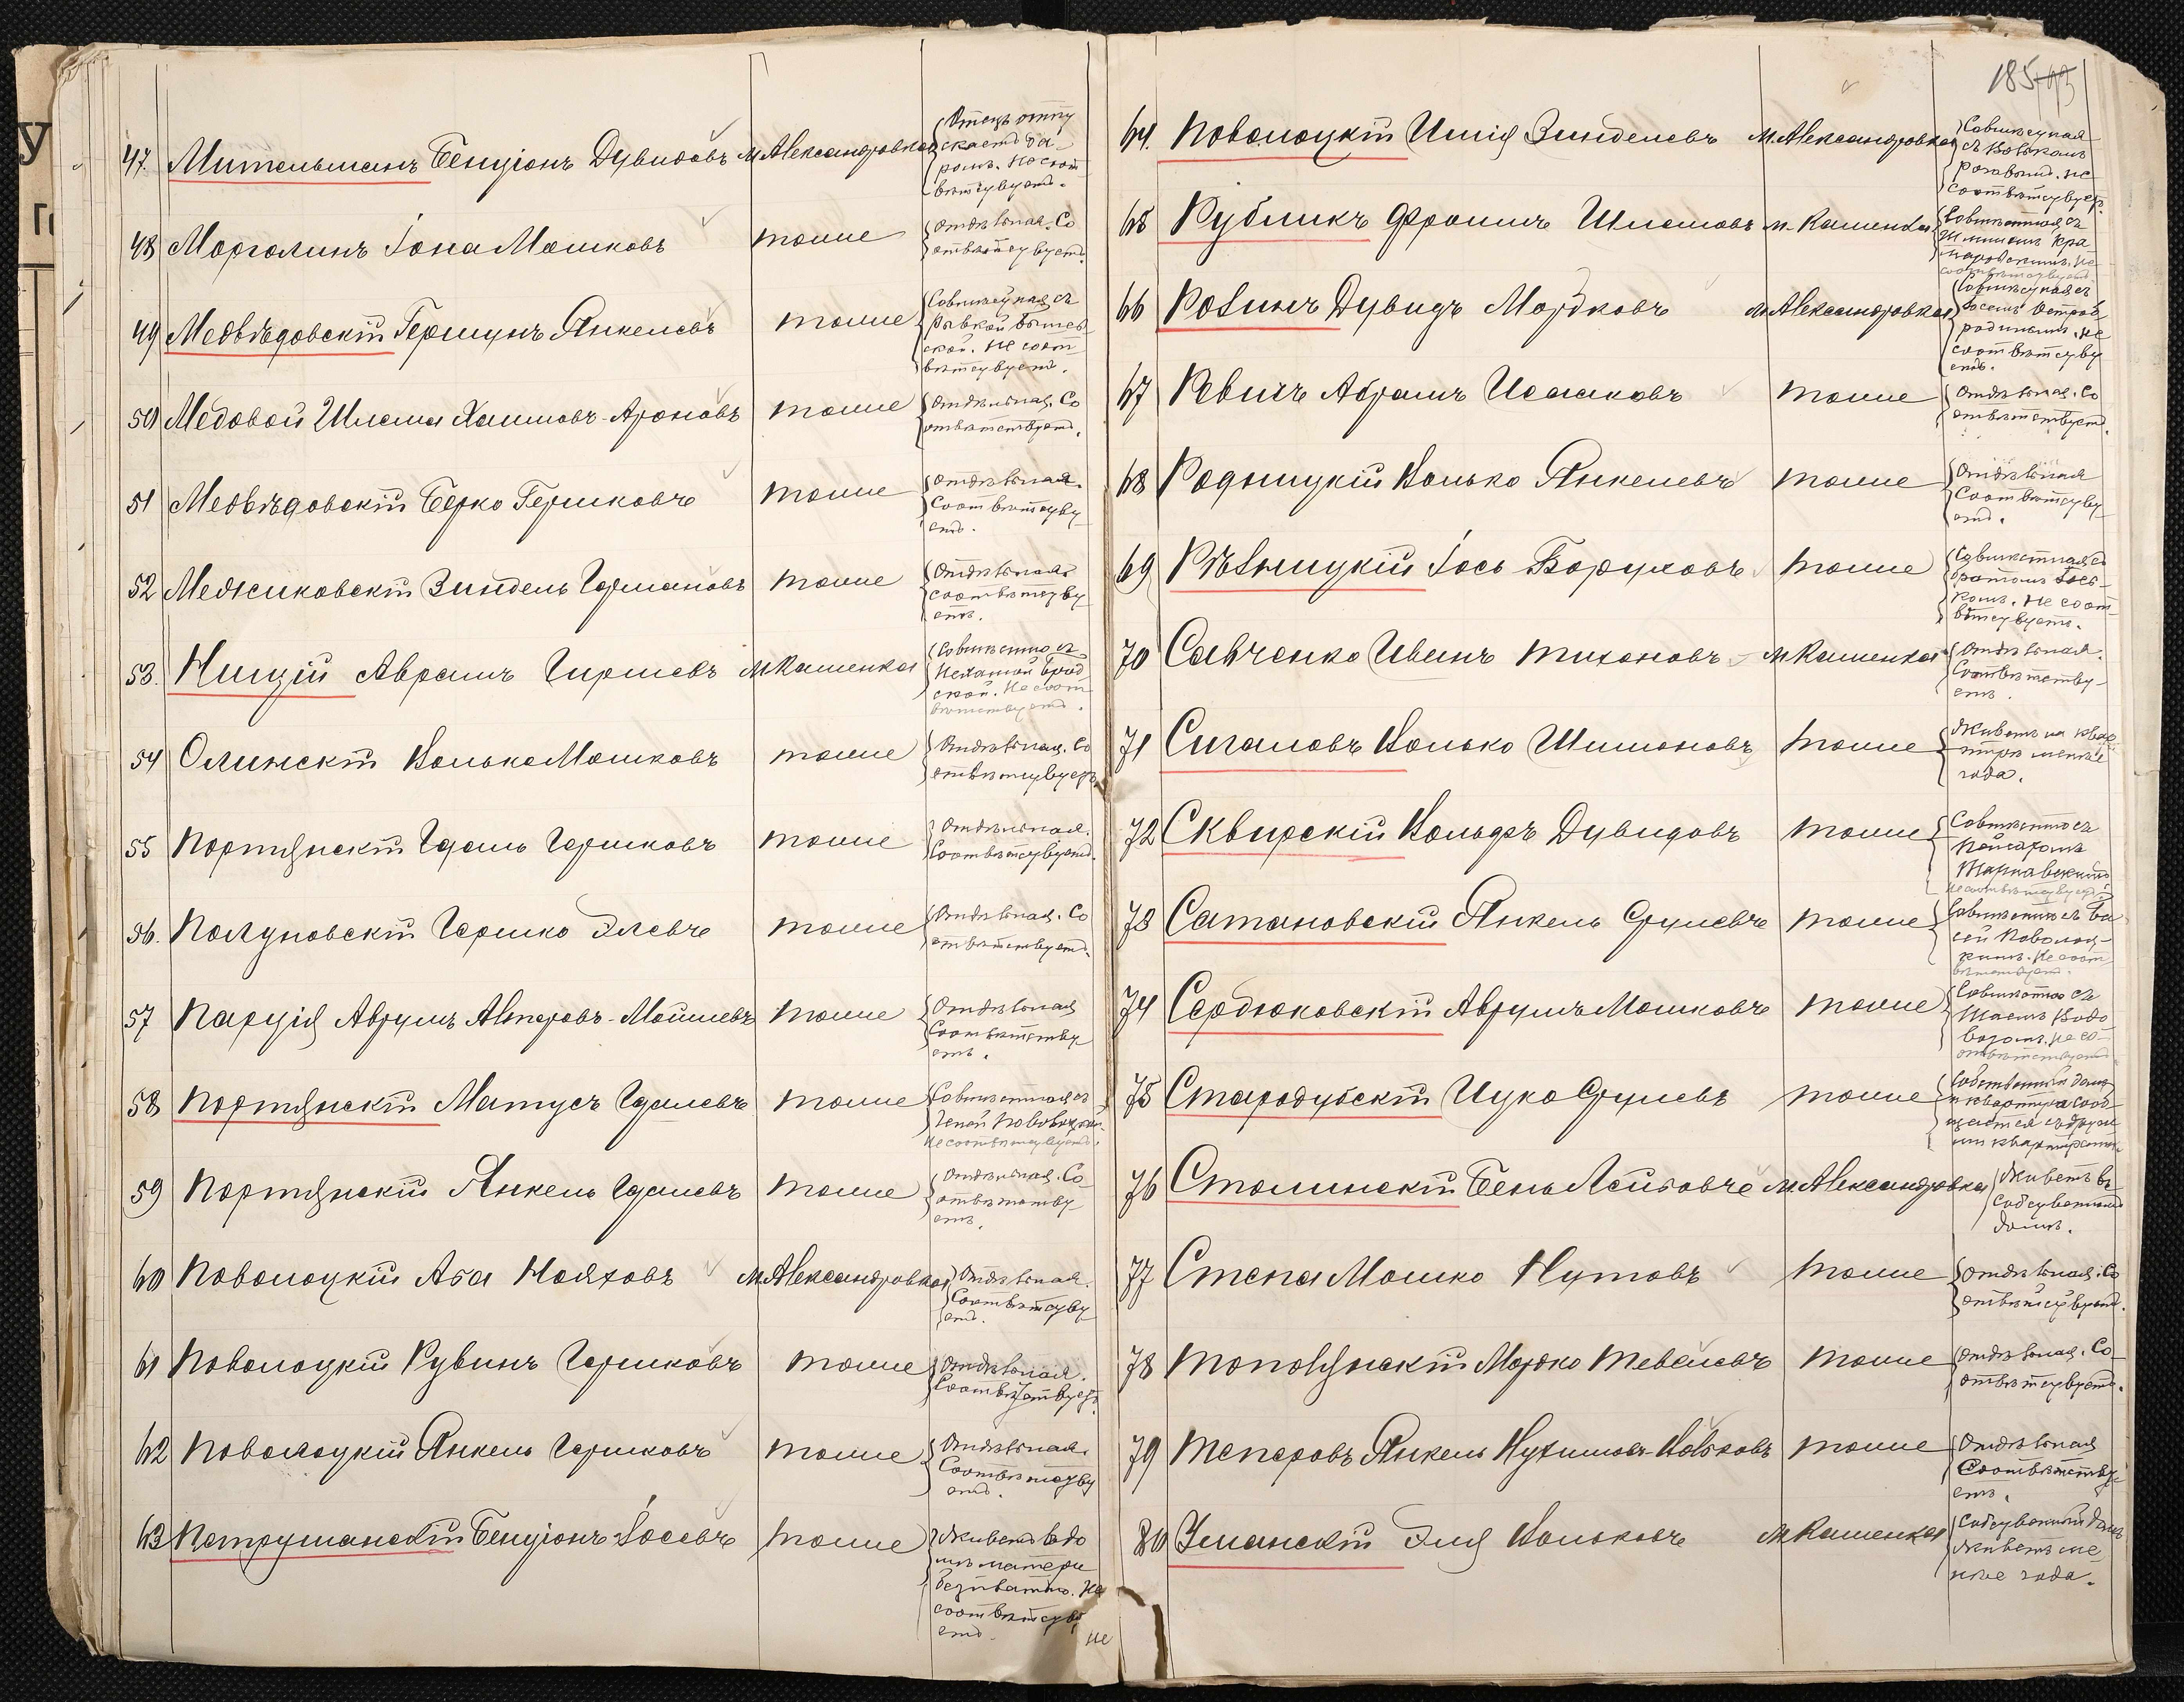 47. Мительманъ Бенціонъ Дувидовъ м. Александровка
Отецъ отпу
скаетъ да-
ромъ. Не соот
вѣтсувуетъ.
48 Марголинъ Іона Мошковъ тоже
Отдѣльная. Со
отвѣтсувуетъ.
49 Медвѣдовскій Гершунъ Янкелевъ тоже
Совмѣсуная съ
Рывкой
ской. Не соот
вѣтсувуетъ.
50 Медовой Шлема Хаимовъ-Ароновъ тоже
Отдѣльная. Со
отвѣтствуетъ.
51 Медвѣдовскій Берко Гершковъ тоже
Отдѣльная.
Соотвѣтсуву
етъ.
52 Межиховскій Зиндель Германовъ тоже
Отдѣльная
соотвѣтсуву
етъ.
53. Нищій Аврамъ Гиршевъ м. Каменка
Совмѣстно съ
Нехамой Брод
ской. Не соот
вѣтствуетъ.
54 Олинскій Волько Мошковъ тоже
Отдѣльная. Со
отвѣтсувуетъ
55 Портянскій Идель Гершковъ тоже
Отдѣльная.
Соотвѣтсувуетъ.
56. Полуновскій Гершко Элевъ тоже
Отдѣльная. Со
отвѣтствуетъ.
57 Парція Аврумъ Алтеровъ-Мойшевъ тоже
Отдѣльная
Соотвѣтству
етъ.
58 Портянскій Матусъ Иделевъ тоже
Совмѣстная съ
Геней Поволоцкой.
Не соотвѣтсувуетъ.
59 Портянскій Янкель Иделевъ тоже
Отдѣльная. Со
отвѣтству
етъ.
60 Поволоцкій Аба Нояховъ м. Александровка
Отдѣльная.
Соотвѣтсуву
етъ.
61 Поволоцкій Рувинъ Гершковъ тоже
Отдѣльная.
Соотвѣтствуетъ.
62 Поволоцкій Янкель Гершковъ тоже
Отдѣльная.
Соотвѣтсуву
етъ.
63 Петрушанскій Бенціонъ Іосевъ тоже
Живетъ въ до
мѣ матери
безплатно. Не
соотвѣтсуву
етъ.
не
185
64. Поволоцкій Ишія Зинделевъ м. Александровка
Совмѣсуная
съ Волькомъ
не
соотвѣтсвуетъ.
65 Рубликъ Фроимъ Шлемовъ м. Каменка
Совмѣстная съ
Не
соотвѣтсувуетъ
66 Розинъ Дувидъ Мордковъ м. Александровка
Совмѣсуная съ
Іосемъ Бетров
родинымъ. Не
соотвѣтсуву
етъ.
67 Ревичъ Абрамъ Исааковъ тоже
Отдѣльная. Со
отвѣтствуетъ.
68 Радницкій Волько Янкелевъ тоже
Отдѣльная
Соотвѣтсуву
етъ.
69 Рѣзницкій Іось Боруховъ тоже
Совмѣстная съ
братомъ Бось-
комъ. Не соот-
вѣтсувуетъ.
70 Савченко Иванъ Тихоновъ м. Каменка
Отдѣльная.
Соотвѣтству-
етъ.
71 Сигаловъ Волько Шимоновъ тоже
Живетъ на квар
тирѣ менѣе
года.
72 Сквирскій Вольфъ Дувидовъ тоже
Совмѣстно съ
Пейсахомъ
Тарнавскимъ
Не соотвѣтсвуетъ
73 Сатановскій Янкель Срулевъ тоже
Совмѣстно съ Ба
сей Поволоц-
кимъ. Не соот
вѣтствуетъ.
74 Сердюковскій Аврумъ Мошковъ тоже
Совмѣстно съ
Водо
возомъ. Не со-
отвѣтствуетъ
75 Стародубскій Ицко Срулевъ тоже
Собственный домъ
и квартира сооб-
щается съ други
ми квартирами
76 Столинскій Бень Лейбовъ м. Александровка
Живетъ въ
собсувенномъ
домѣ.
77 Степа Мошко Нутовъ тоже
Отдѣльная. Со
отвѣтсувуетъ.
78 Тополянскій Мордко Тевелевъ тоже
Отдѣльная. Со
отвѣтсувуетъ.
79 Теперовъ Янкель Нухимовъ-Вольковъ тоже
Отдѣльная
Соотвѣтству-
етъ.
80 Уманскій Эля Вольковъ м. Каменка
Собсувенный домъ
живетъ ме
нѣе года.